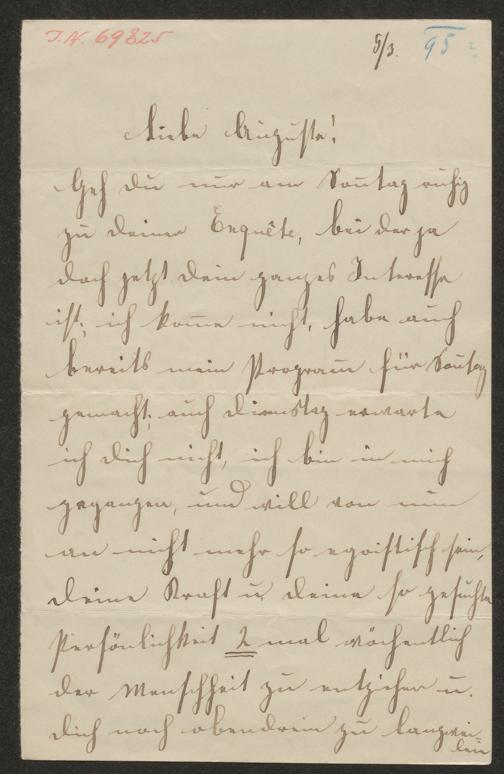 I.N. 69825
5/3. 95?
Liebe Auguste!
Geh du nur am Sontag ruhig
zu deiner Enquête, bei der ja
doch jetzt dein ganzes Interesse
ist; ich kome nicht, habe auch
bereits mein Program für Sontag
gemacht; auch Dienstag erwarte
ich dich nicht, ich bin in mich
gegangen, und will von nun
an nicht mehr so egoistisch sein,
deine Kraft u. deine so gesuchte
Persönlichkeit 2 mal wöchentlich
der Menschheit zu entziehen u.
dich noch obendrein zu langwei-
len